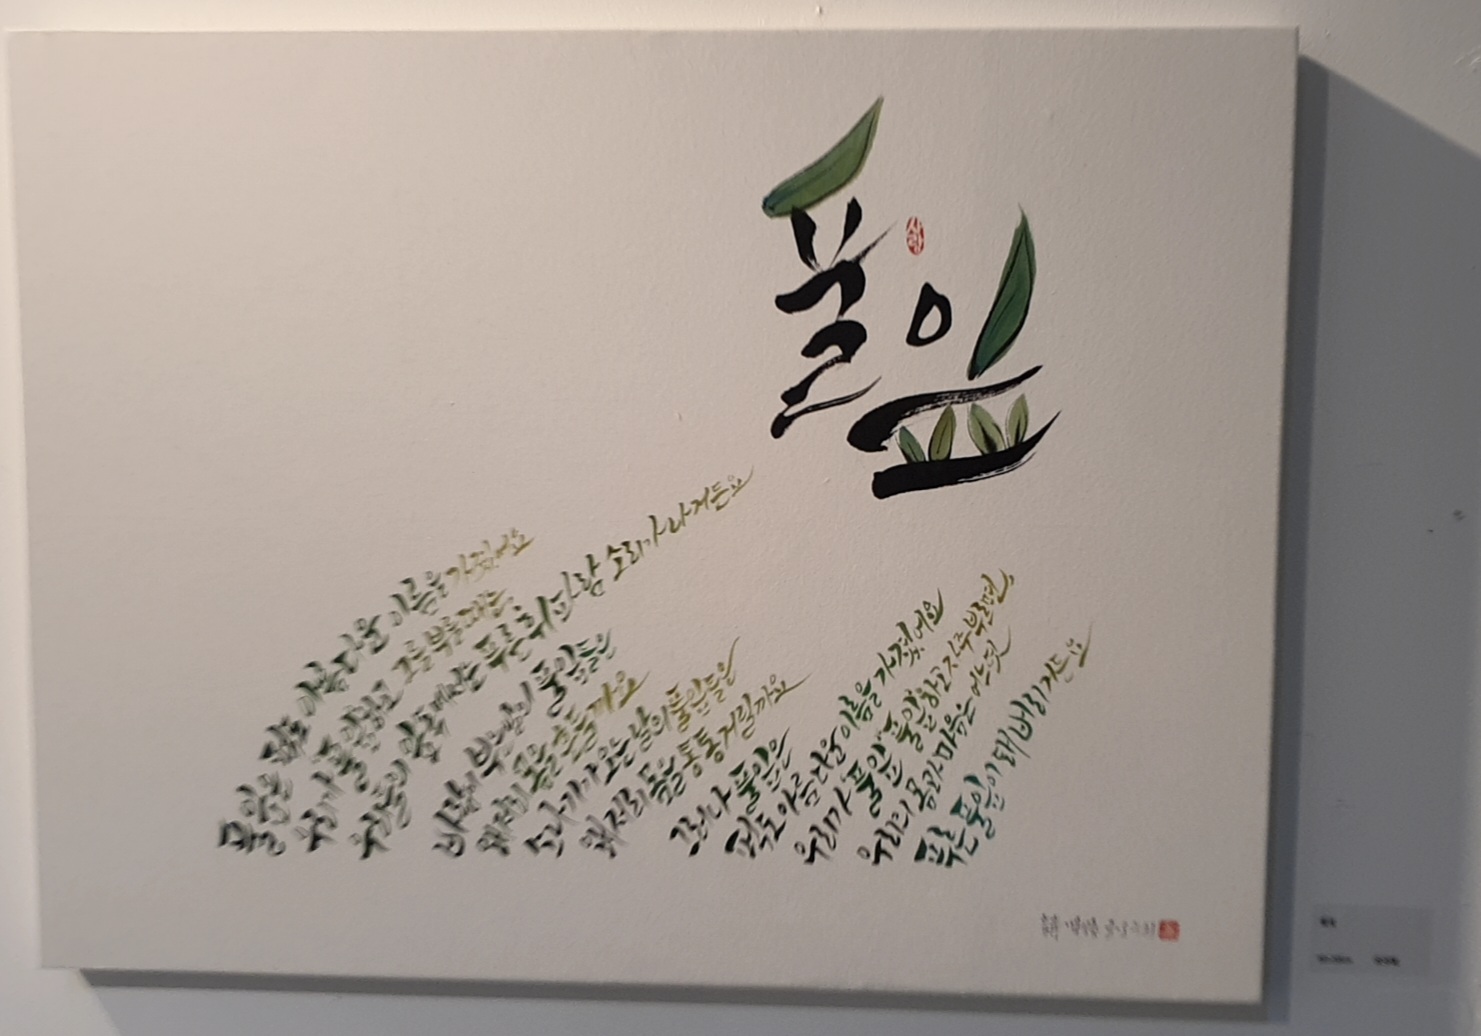 풀잎
사랑
풀잎은 퍽도 아름다운 이름을 가졌어요
우리가 풀잎하고 그를 부를 때는
우리들의 입속에서는 푸른 휘파람 소리가 나거든요
바람이 부는 날의 풀잎들은
왜 저리 몸을 흔들까요
소나기가 오는 날의 풀잎들은
왜 저리 몸을 통통거릴까요
그러나 풀잎은
퍽도 아름다운 이름을 가졌어요
우리가 "풀잎" "풀잎"하고 자주 부르면,
우리의 몸과 마음은 어느덧
푸른 풀잎이 돼 버리거든요